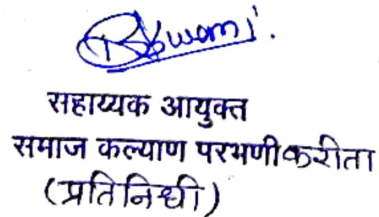 सहाय्यक आयुक्त
समाज कल्याण परभणीकरीता
(प्रतिनिधी)